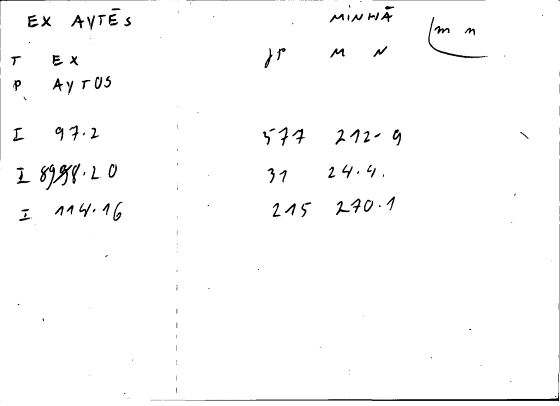 EX AYTĒS MINHĀ m n
T EX JP M N
P AYTOS
I 97.2 577 212-9
I 20 31 24.4.
I 114.16 215 270.1